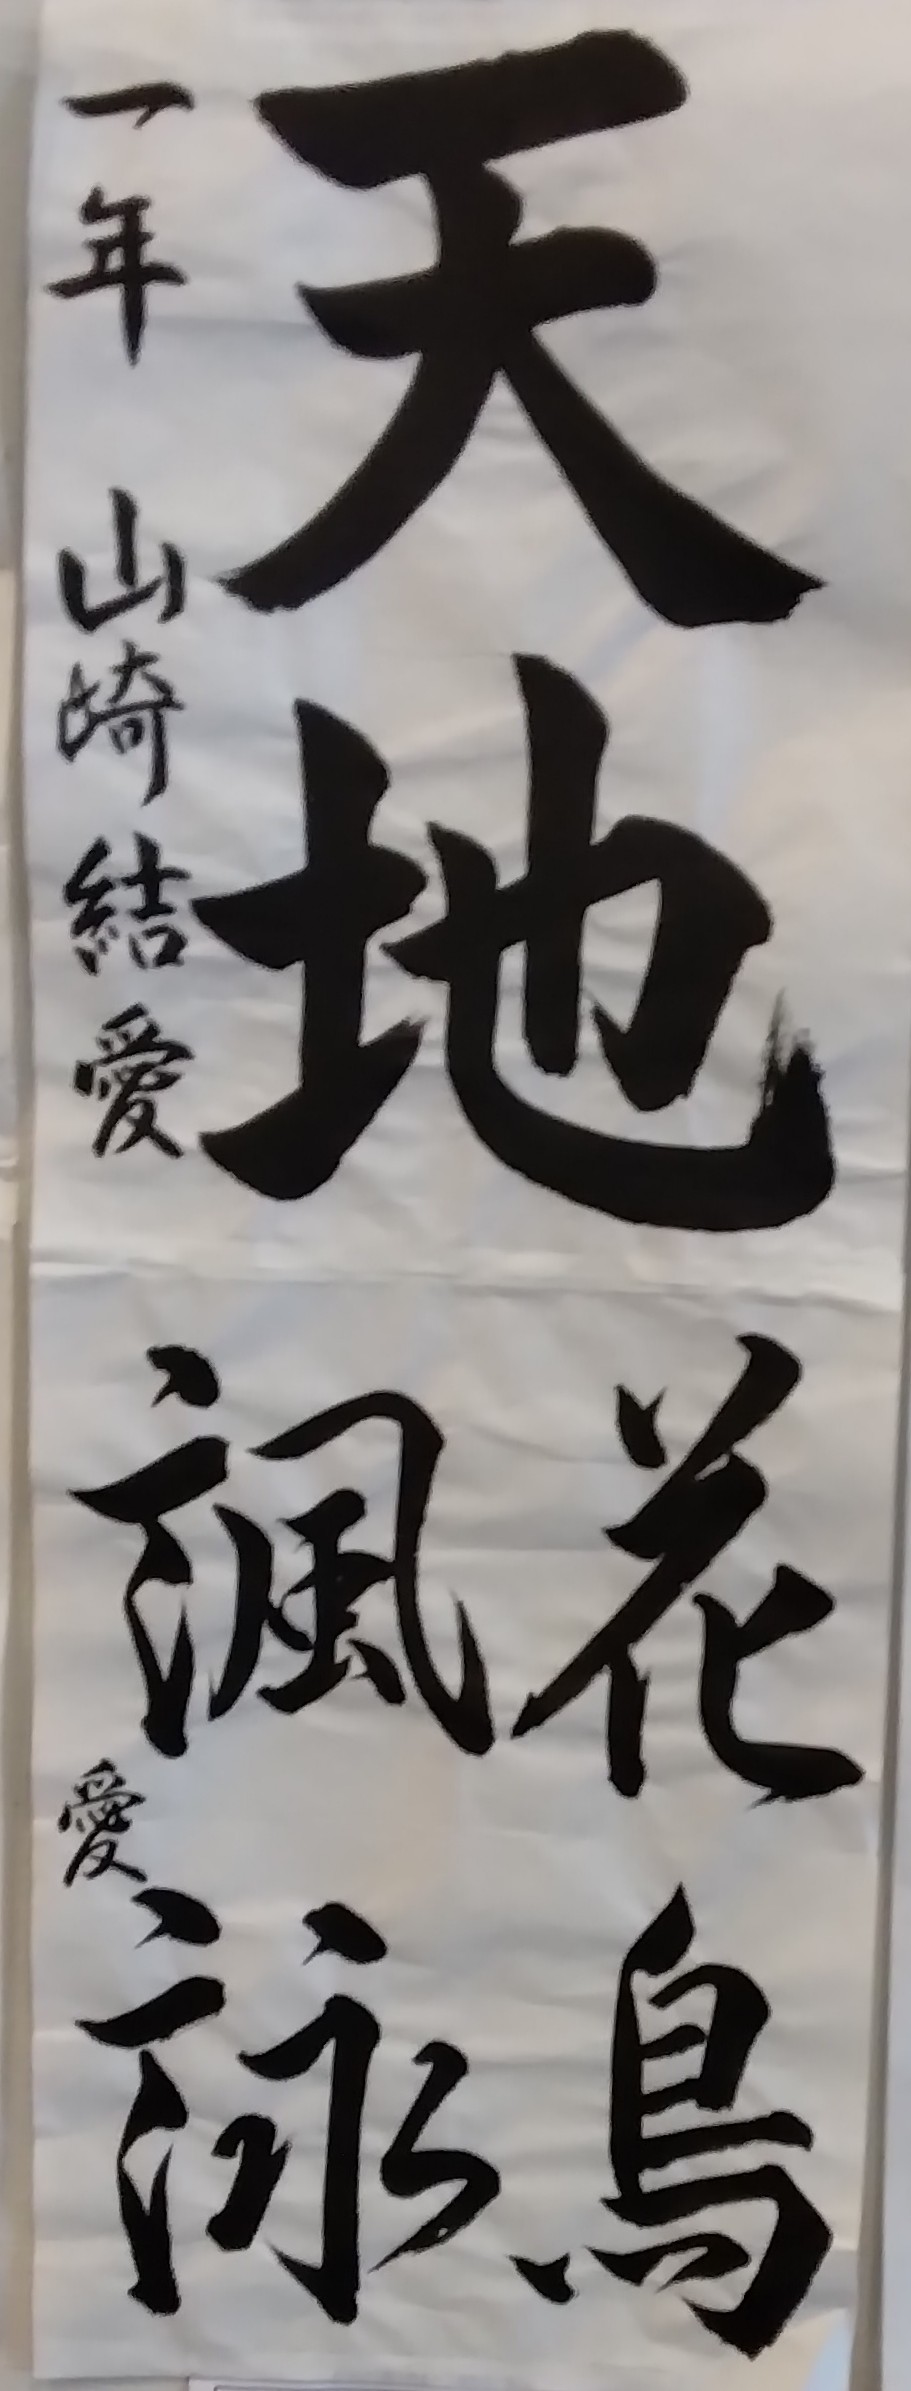 天地
花鳥
諷詠
一年 山崎結愛
愛